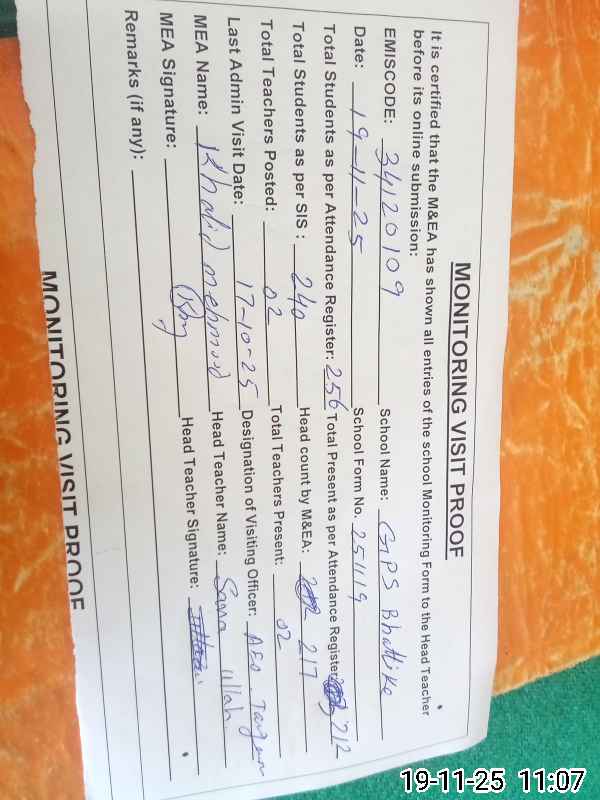 MONITORING VISIT PROOF
It is certified that the M&EA has shown all entries of the school Monitoring Form to the Head Teacher
before its online submission:
EMISCODE: 34120109 School Name: GPS Bhattike
Date: 19-11-25 School Form No. 251119
Total Students as per Attendance Register: 256 Total Present as per Attendance Register: 212
Total Students as per SIS : 240 Head count by M&EA: 217
Total Teachers Posted: 02 Total Teachers Present: 02
Last Admin Visit Date: 17-10-25 Designation of Visiting Officer: AEO
MEA Name: Khalid mehmood Head Teacher Name: Sana ullah
MEA Signature: Head Teacher Signature:
Remarks (if any):
MONITORING VISIT PROOF
19-11-25 11:07